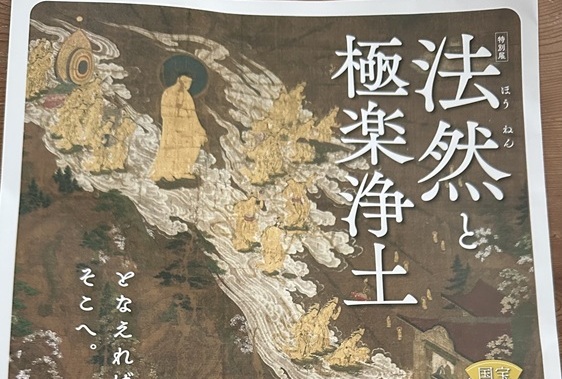 特別展
法然と
ほうねん
極楽浄土
となえれば
そこへ。
国宝